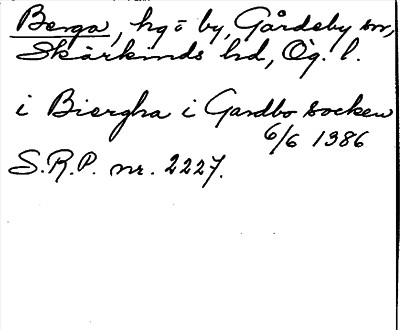 Berga, hg o by, Gårdeby sn,
Skärkinds hd, Ög. l.
i Biergha i Gardbo socken
6/6 1386
S.R.P. nr. 2227.